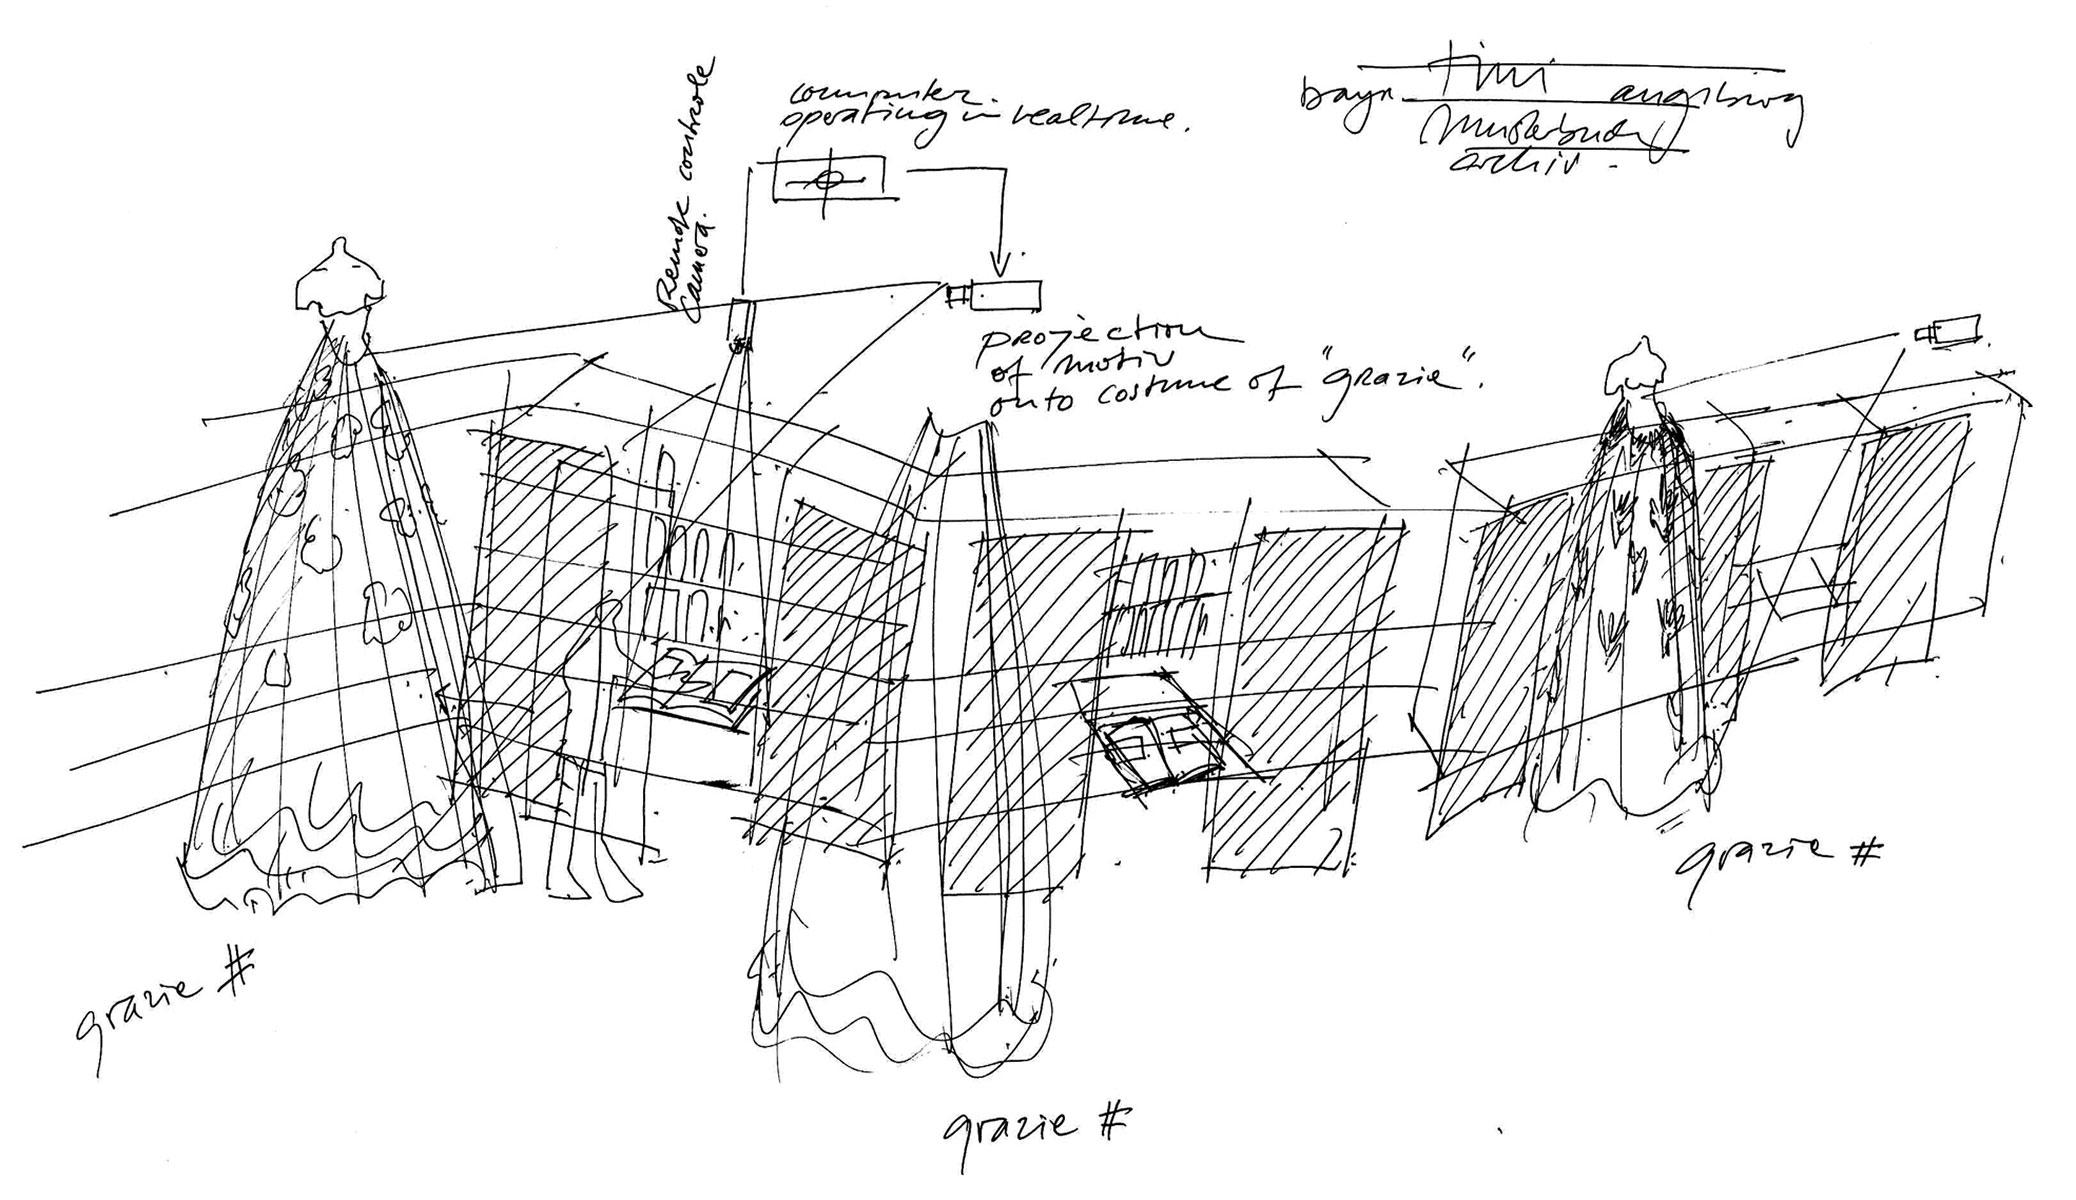 computer.
operating in realtime.
Remote controle
camera.
tim
bayr. augsburg
Musterbuch
archiv.
projection
of motiv
onto costume of "grazie".
grazie #
grazie #
grazie #